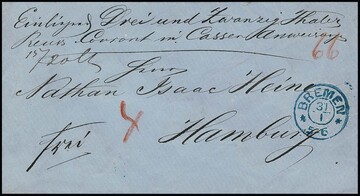 Einliegend Drei und Zwanzig Thaler
Preuss Courant in Cassen Anweisung
66
Herrn
Nathan Isaac Heine
Hamburg
frei
BREMEN
31
1
5-6